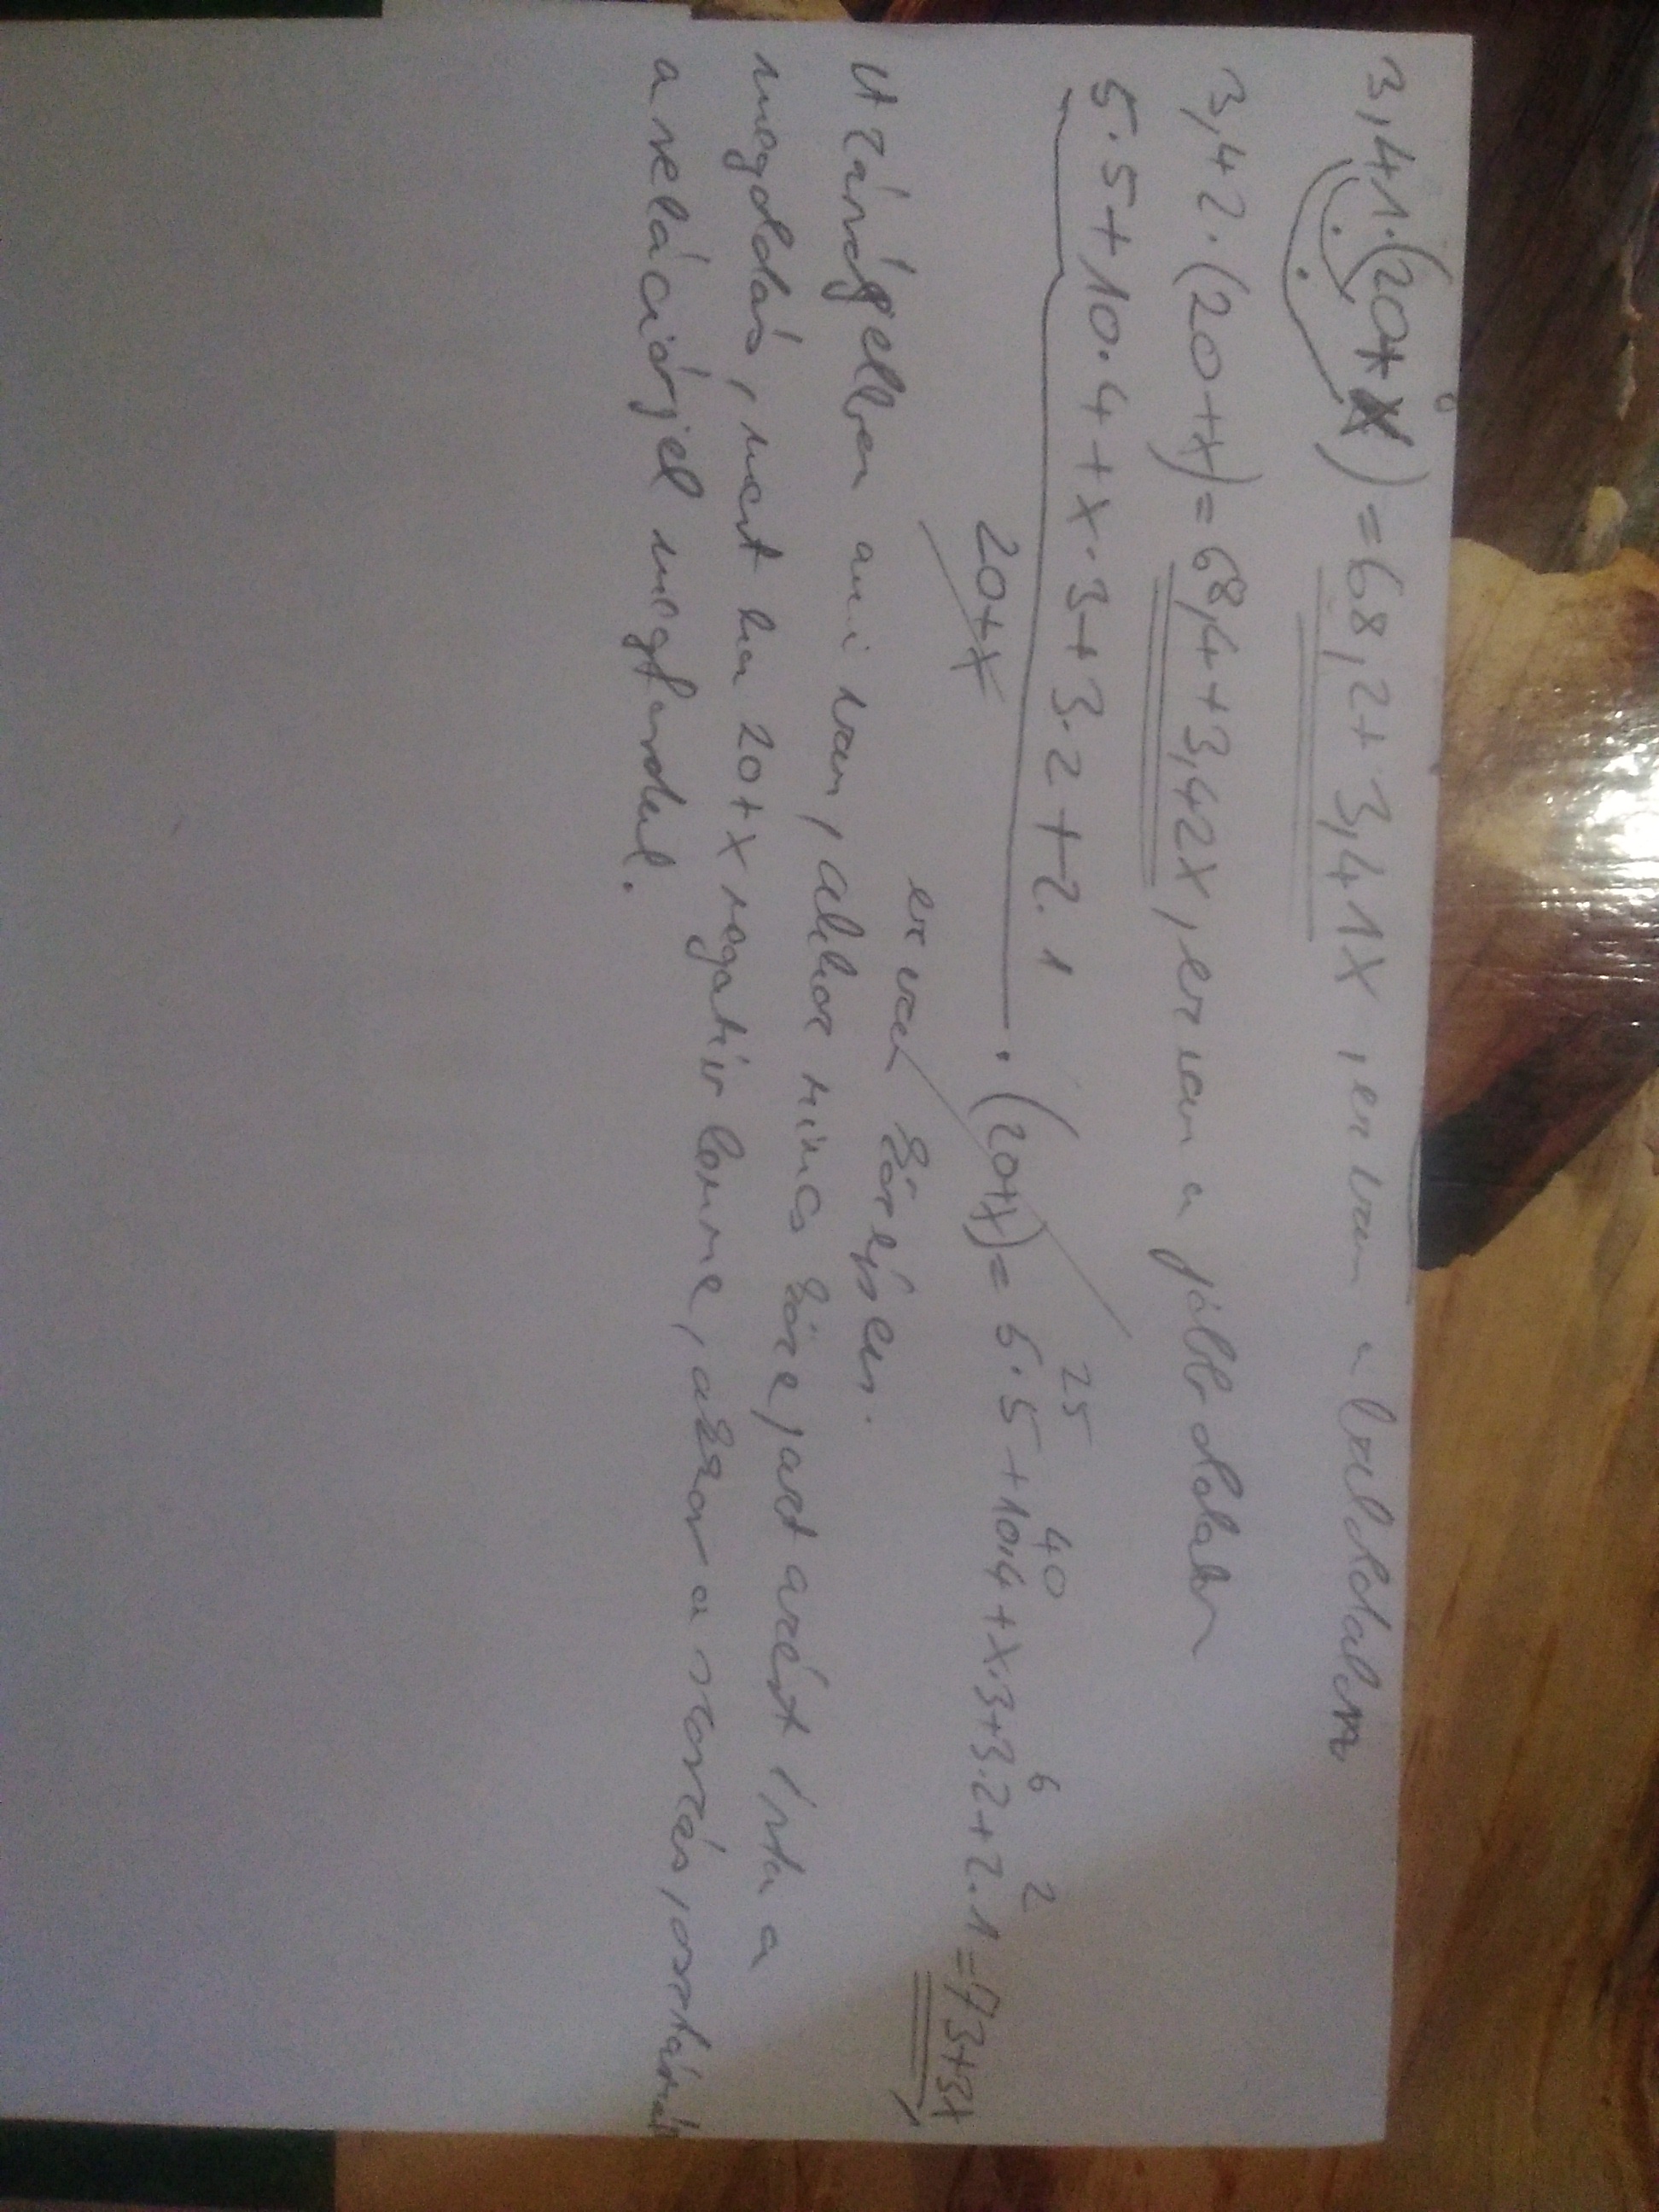 3,41·(20+x)=68,2+3,41x, ez van a baloldalon
3,42·(20+x)=68,4+3,42x, ez van a jobb oldalon
5·5+10·4+x·3+3·2+2·1
20+x
·(20+x)=5·5+10·4+x·3+3·2+2·1=73+3x,
25 40 6 2
ez van középen.
A zárójelben ami van, ahhoz nincs köze, azért írta a
megoldás, mert ha 20+x negatív lenne, akkor a szorzás, osztásnál
a relációjel megfordul.